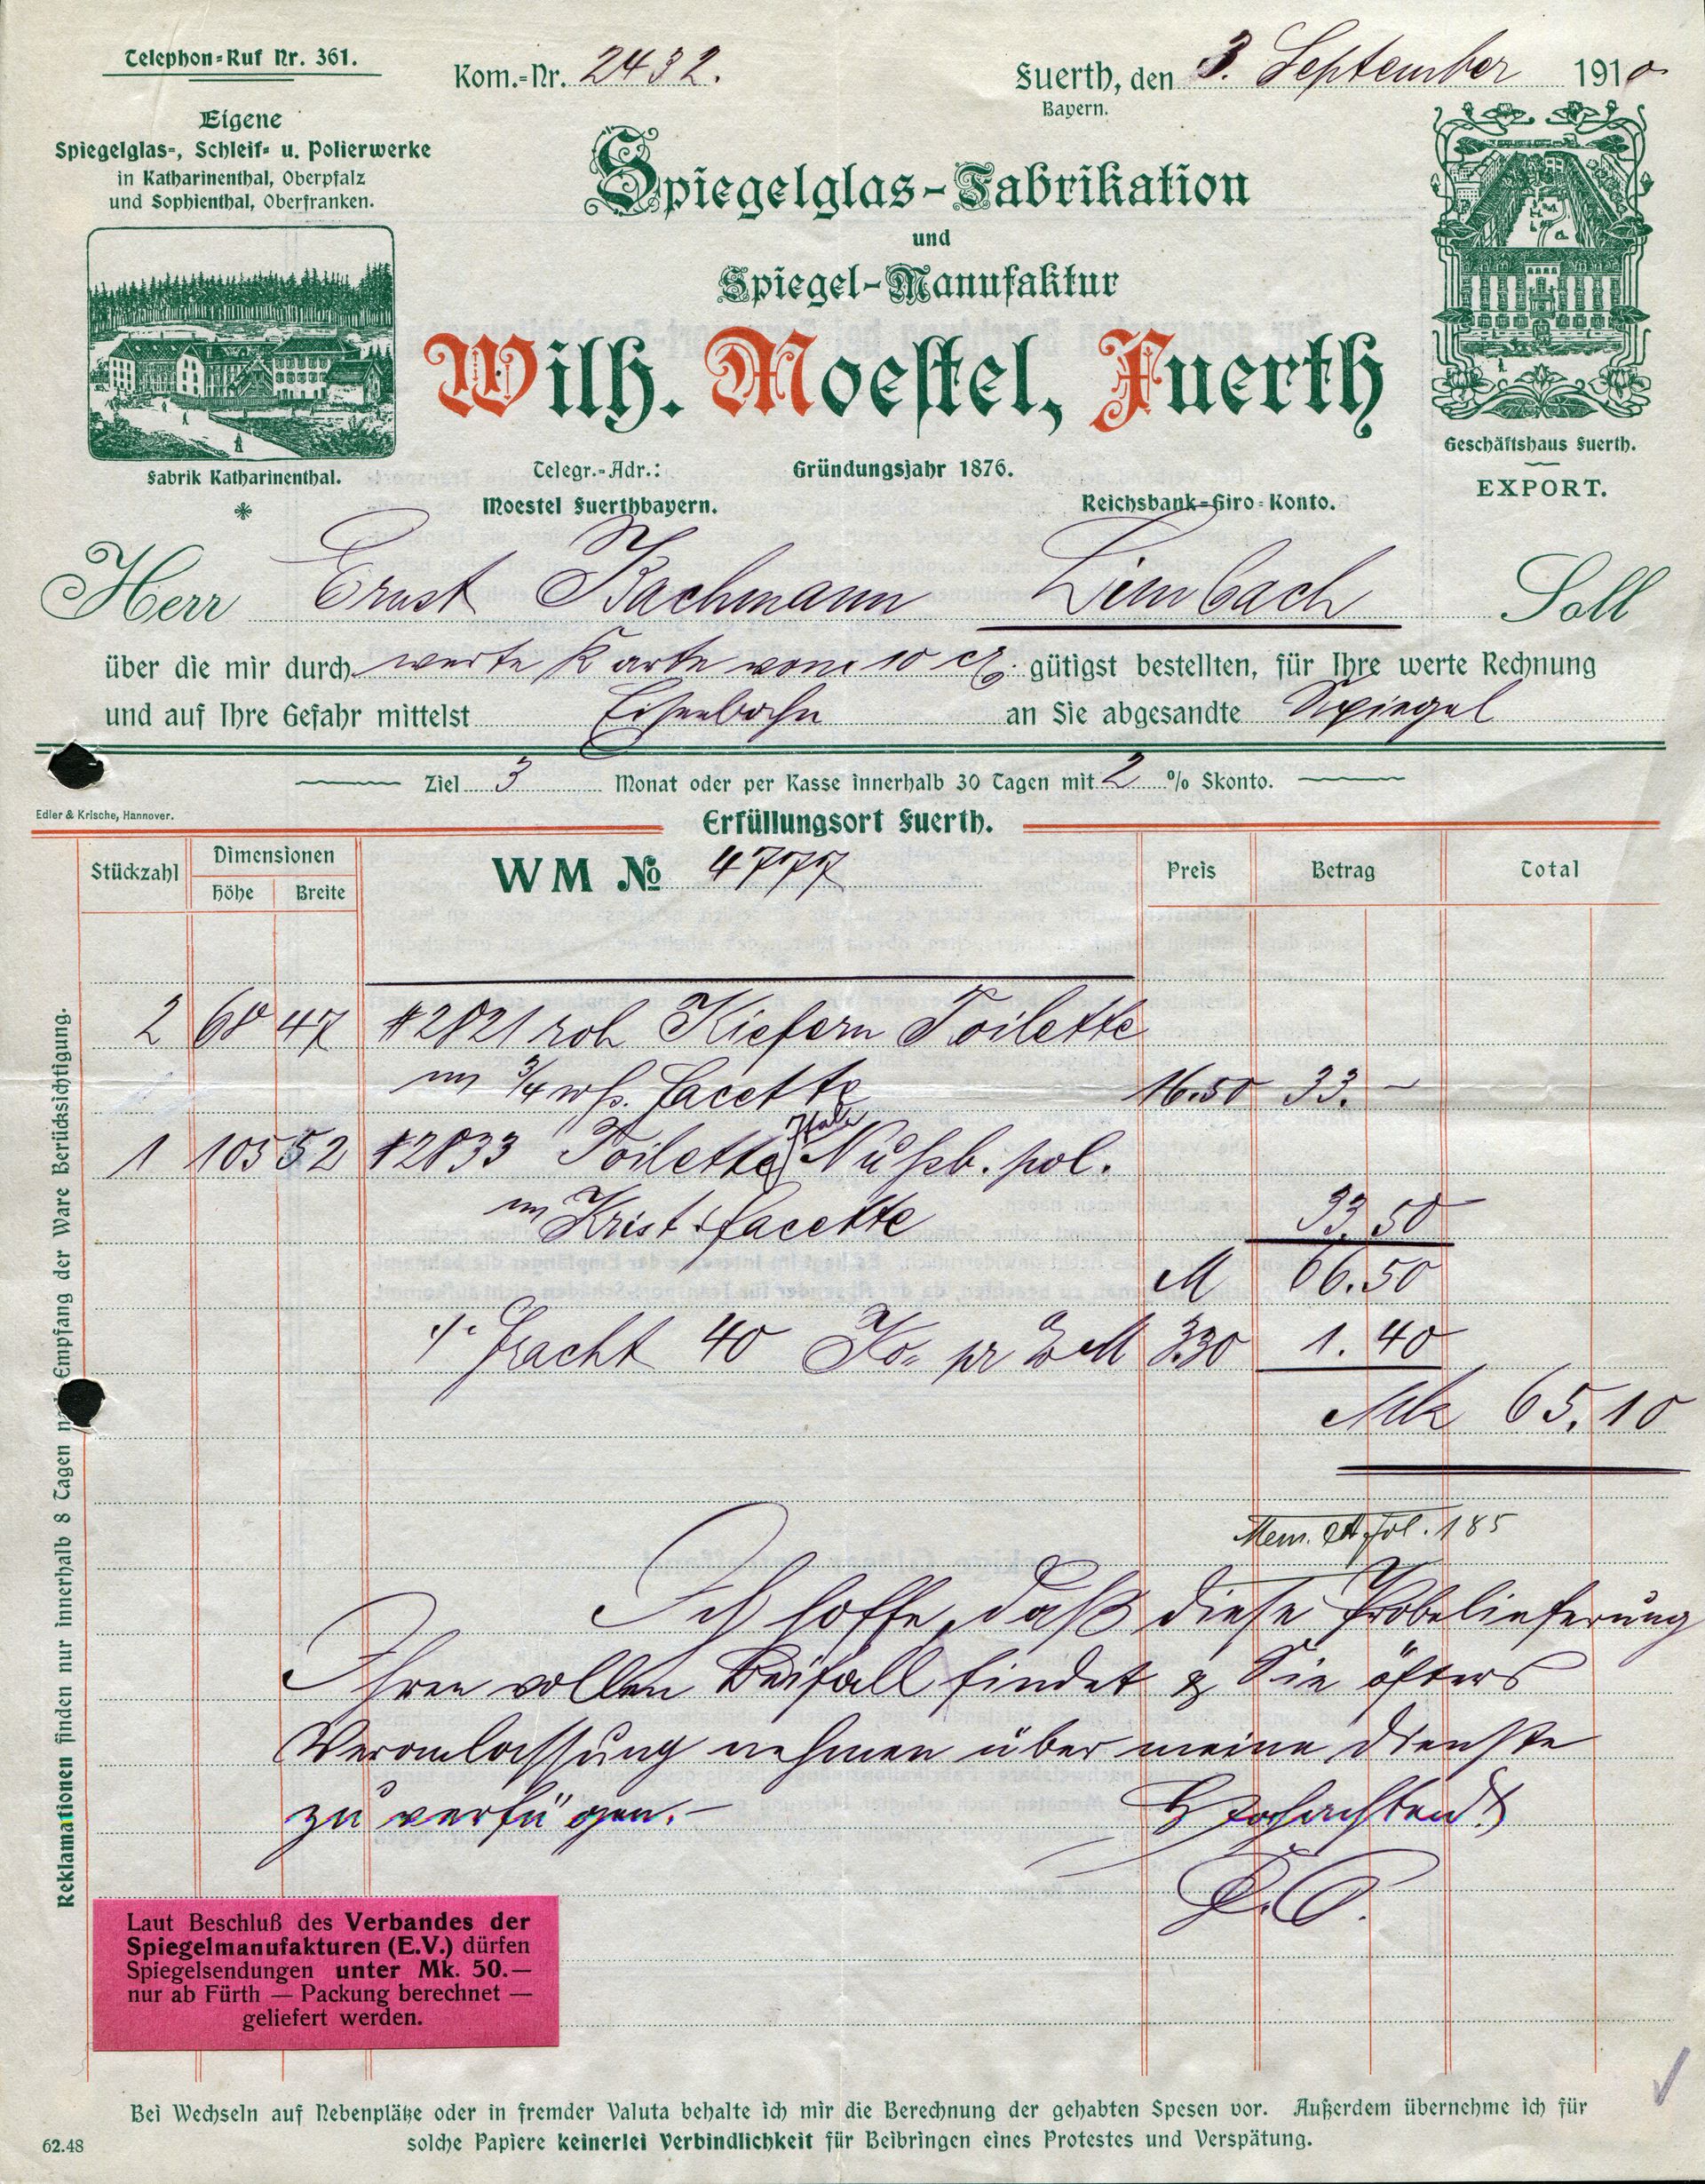 Telephon-Ruf Nr. 361.
Kom.-Nr. 2432.
Fuerth, den 3. September 1910
Bayern.
Eigene
Spiegelglas-, Schleif- u. Polierwerke
in Katharinenthal, Oberpfalz
und Sophienthal, Oberfranken.
Spiegelglas-Fabrikation
und
Spiegel-Manufaktur
Wilh. Moestel, Fuerth
Fabrik Katharinenthal.
Telegr.-Adr.:
Moestel Fuerthbayern.
Gründungsjahr 1876.
Reichsbank-Giro-Konto.
Geschäftshaus Fuerth.
EXPORT.
Herr Ernst Bachmann Limbach Soll
über die mir durch werte Karte vom 10 gütigst bestellten, für Ihre werte Rechnung
und auf Ihre Gefahr mittelst Eisenbahn an Sie abgesandte Spiegel
Ziel 3 Monat oder per Kasse innerhalb 30 Tagen mit 2 % Skonto.
Edler & Krische, Hannover.
Erfüllungsort Fuerth.
Stückzahl Dimensionen WM No 4777 Preis Betrag Total
Höhe Breite
2 68 47 #2821 roh Kiefern Toilette
m 3/4 wß. Facette 16.50 33.–
1 105 52 #2833 Toilette Nußb. pol.
m Krist. facette 33.50
M 66.50
./. Fracht 40 Ko. pr M 3.30 1.40
Mk 65.10
Mem. fol. 185
Ich hoffe, daß diese Probelieferung
Ihren vollen Beifall findet & Sie öfters
Veranlassung nehmen über meine Dienste
zu verfügen.–
Hochachtend
Reklamationen finden nur innerhalb 8 Tagen Empfang der Ware Berücksichtigung.
Laut Beschluß des Verbandes der
Spiegelmanufakturen (E.V.) dürfen
Spiegelsendungen unter Mk. 50.—
nur ab Fürth — Packung berechnet —
geliefert werden.
Bei Wechseln auf Nebenplätze oder in fremder Valuta behalte ich mir die Berechnung der gehabten Spesen vor. Außerdem übernehme ich für
solche Papiere keinerlei Verbindlichkeit für Beibringen eines Protestes und Verspätung.
62.48